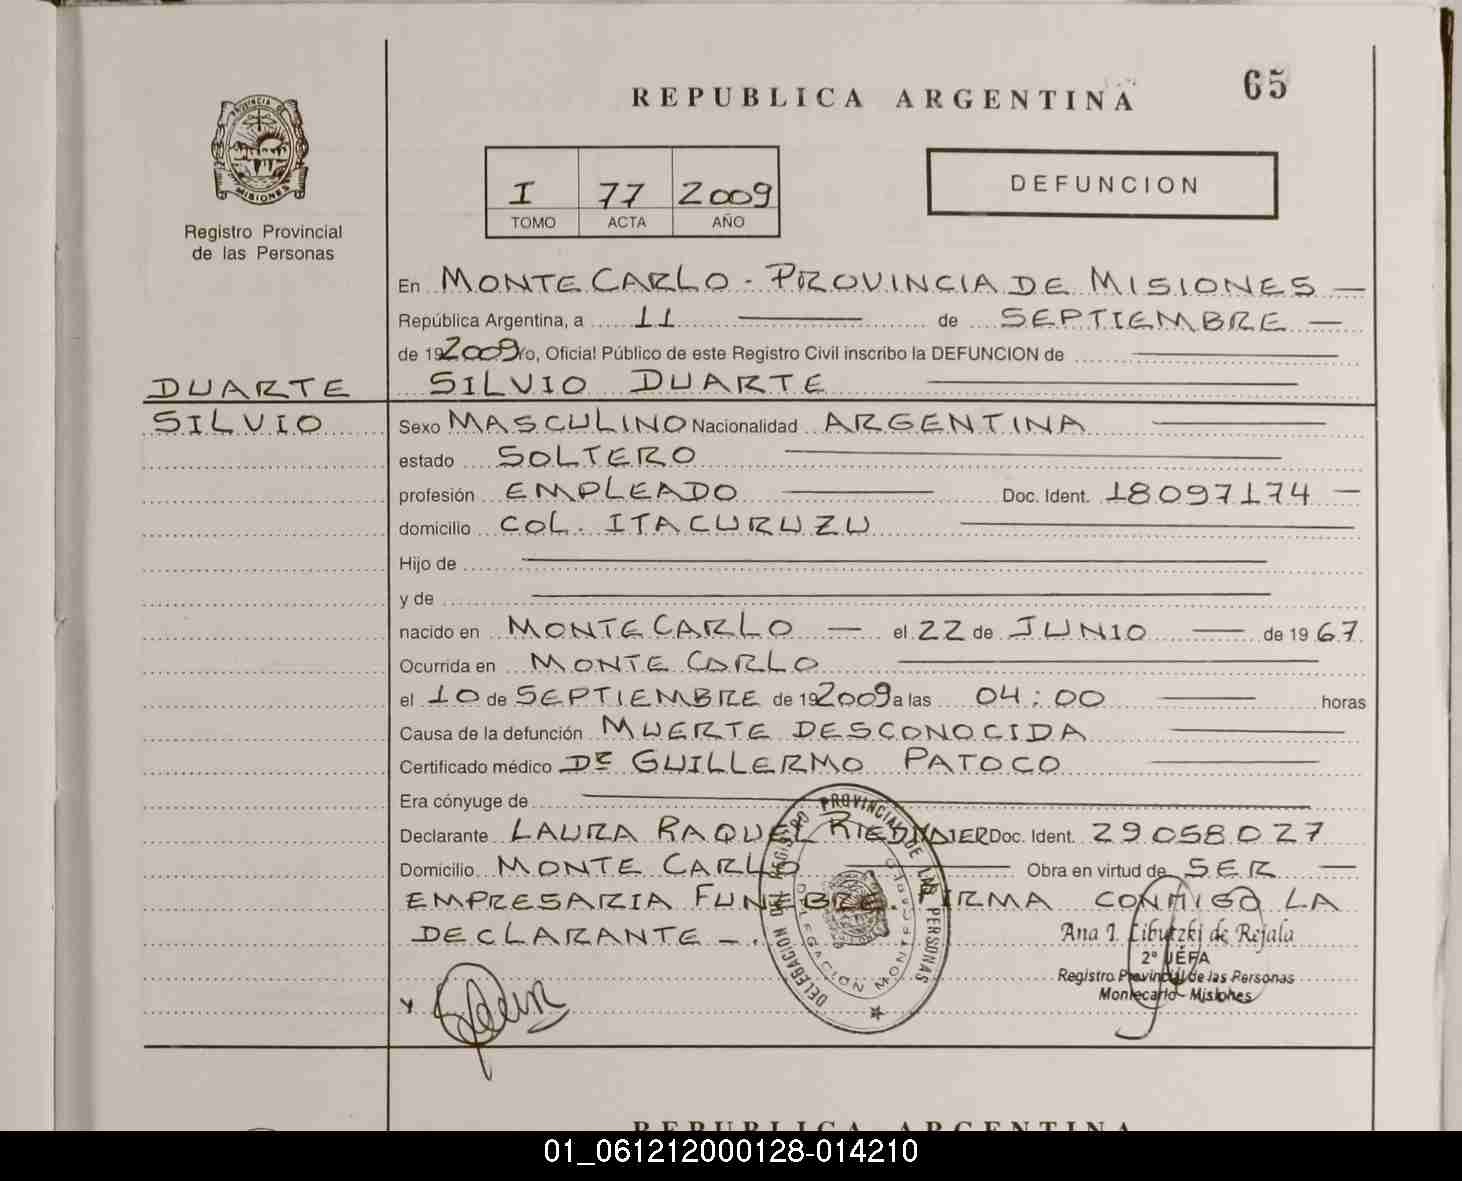 REPUBLICA ARGENTINA
65
PROVINCIA DE MISIONES
Registro Provincial
de las Personas
I 77 2009
TOMO ACTA AÑO
DEFUNCION
En MONTECARLO - PROVINCIA DE MISIONES
República Argentina, a 11 de SEPTIEMBRE
de 192009 Yo, Oficial Público de este Registro Civil inscribo la DEFUNCION de
DUARTE
SILVIO
SILVIO DUARTE
Sexo MASCULINO Nacionalidad ARGENTINA
estado SOLTERO
profesión EMPLEADO Doc. Ident. 18097174
domicilio COL. ITACURUZU
Hijo de
y de
nacido en MONTECARLO el 22 de JUNIO de 1967
Ocurrida en MONTECARLO
el 10 de SEPTIEMBRE de 192009 a las 04:00 horas
Causa de la defunción MUERTE DESCONOCIDA
Certificado médico Dr GUILLERMO PATOCO
Era cónyuge de
Declarante LAURA RAQUEL Doc. Ident. 29058027
Domicilio MONTE CARLO Obra en virtud de SER
EMPRESARIA FUNEBRE. FIRMA CONMIGO LA
DECLARANTE -.
DELEGACION DEL REGISTRO PROVINCIAL DE LAS PERSONAS
DELEGACION MONTECARLO
Ana I. Libutzki de Rejala
2° JEFA
Registro Provincial de las Personas
Montecarlo - Misiones
REPUBLICA ARGENTINA
01_061212000128-014210